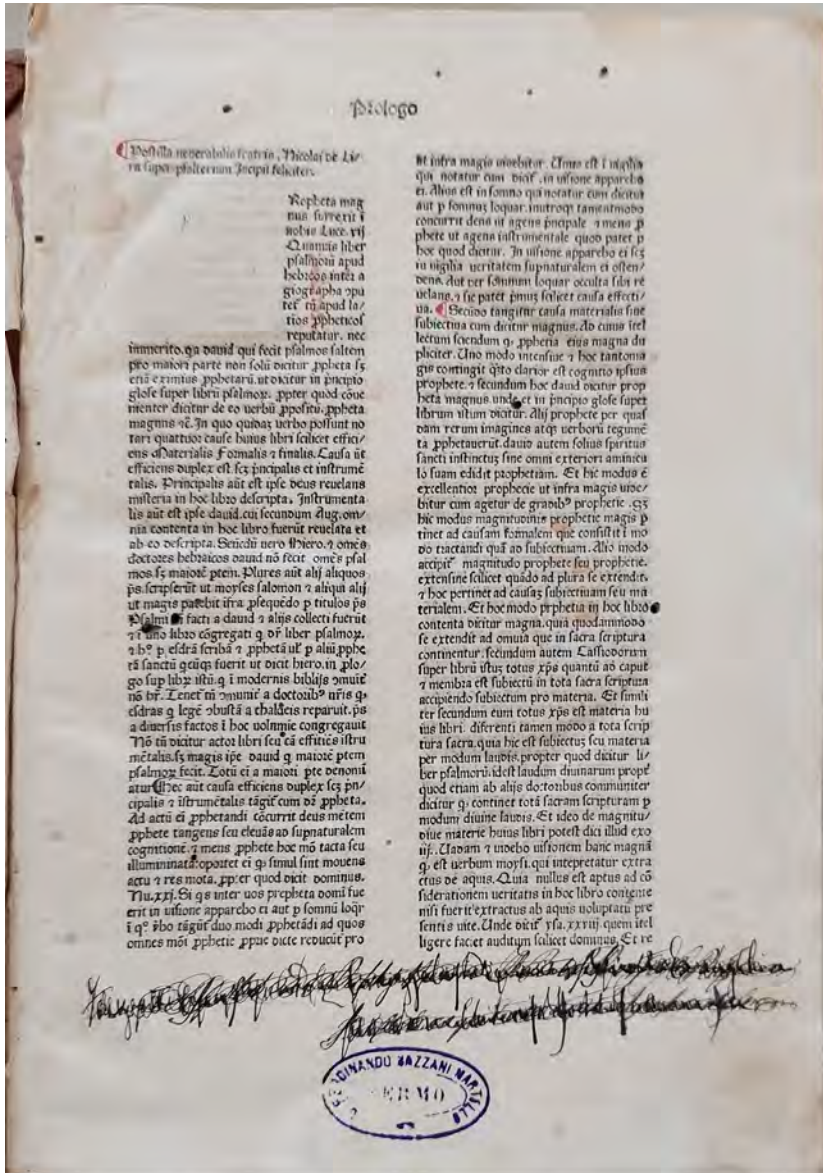 Prologo
Postilla venerabilis fratris. Nicolai de Li/
ra super psalterium Incipit feliciter.
Ropheta mag
nus surrexit ī
nobis Luce. vij
Quamuis liber
psalmoꝝ apud
hebreos inter a
giographa ↄpu
teť tn̄ apud la/
tios ꝓpheticoſ
reputatur. nec
immerito. qa dauid qui fecit psalmos saltem
pro maiori parte non solū dicitur ꝓpheta sꝫ
etiā eximius ꝓphetarū. ut dicitur in pncipio
glose super librū psalmoꝝ. ꝓpter quod cōue
nienter dicitur de eo uerbū ꝓpositū. ꝓpheta
magnus ⁊c̄. In quo quidaꝫ uerbo possunt no
tari quattuor cause huius libri scilicet effici/
ens Materialis Formalis ⁊ finalis. Causa aūt
efficiens duplex est scꝫ pncipalis et instrumē
talis. Principalis aūt est ipse deus reuelans
misteria in hoc libro descripta. Instrumenta
lis aūt est ipse dauid. cui secundum Aug. om/
nia contenta in hoc libro fuerūt reuelata et
ab eo descripta. Secūdū uero Hiero. ⁊ omēs
doctores hebraicos dauid nō fecit omēs psal
mos. sꝫ maiorē ptem. Plures aūt alij aliquos
ps. scripserūt ut moyses salomon ⁊ aliqui alij
ut magis patebit ifra ꝓsequēdo p titulos ps
Psalmi facti a dauid ⁊ alijs collecti fuerūt
⁊ ī uno libro cōgregati q dr̄ liber psalmoꝝ.
⁊ hº p esdrā scribā ⁊ ꝓphetā ul' p aliū ꝓphe
tā sanctū qcūqꝫ fuerit ut dicit hiero. in plo/
go sup libꝝ istū. q ī modernis biblijs ↄmuīt
nō hr̄. Tenet tn̄ ↄmunit' a doctoribꝰ nr̄is q,
esdras q legē ↄbustā a chaldeis reparuit. ps
a diuersis factos ī hoc uolumie congregauit
Nō tn̄ dicitur actor libri seu cā efficiēs istru
mētalis. sꝫ magis ipe dauid q maiorē ptem
psalmoꝝ fecit. Totū ei a maiori pte denomī
atur Hec aūt causa efficiens duplex scꝫ pn/
cipalis ⁊ istrumētalis tāgit' cum dr̄ ꝓpheta.
Ad actū ei ꝓphetandi cōcurrit deus mētem
ꝓphete tangens seu eleuās ad supnaturalem
cognitionē. ⁊ mens ꝓphete hoc mō tacta seu
illumminata. oportet ei q, simul sint mouens
actu ⁊ res mota. ꝓpter quod dicit dominus.
Nu. xxj. Si qs inter uos prepheta domī fue
erit in uisione apparebo ei aut p somnū loqr
ī qº ůbo tāgūt' duo modi ꝓphetādi ad quos
omnes mōi ꝓphetie ꝓprie dicte reducūt' pro
ut infra magis uidebitur. Unus est ī uigilia
qui notatur cum dicit', in uisione apparebo
ei. Alius est in somno qui notatur cum dicitur
aut p somnus loquar. inutroqꝫ tamentmodo
concurrit deus ut agens pncipale ⁊ mens p
phete ut agens instrumentale quod patet p
hoc quod dicitur. In uisione apparebo ei scꝫ
in uigilia ueritatem supnaturalem ei osten/
dens. Aut per somnum loquar occulta sibi re
uelans. ⁊ sic patet pmus scilicet causa effecti/
ua. Secūdo tangitur causa materialis siue
subiectiua cum dicitur magnus. Ad cuius itel
lectum sciendum q, ꝓphetia eius magna du
pliciter. Uno modo intensiue ⁊ hoc tantoma
gis contingit qsto clarior est cognitio ipsius
prophete. ⁊ secundum hoc dauid dicitur prop
heta magnus unde et in pncipio glose super
librum istum dicitur. Alij prophete per quas
dam rerum imagines atqꝫ uerborū tegumē
ta ꝓphetauerūt. dauid autem solius spiritus
sancti instinctus sine omni exteriori aminicu
lo suam edidit prophetiam. Et hic modus ē
excellentior prophecie ut infra magis uide/
bitur cum agetur de gradibꝰ prophetie. qꝫ
hic modus magnitudinis prophetie magis p
tinet ad causam formalem que consistit ī mo
do tractandi quā ad subiectiuam. Alio modo
accipit' magnitudo prophete seu prophetie.
extensiue scilicet quādo ad plura se extendit.
⁊ hoc pertinet ad causaꝫ subiectiuam seu ma
terialem. Et hoc modo prphetia in hoc libro
contenta dicitur magna. quia quodammodo
se extendit ad omnia que in sacra scriptura
continentur. secundum autem Cassiodorum
super librū istuꝫ totus xp̄s quantū ad caput
⁊ membra est subiectū in tota sacra scriptura
accipiendo subiectum pro materia. Et simili
ter secundum eum totus xp̄s est materia hu
ius libri. diferenti tamen modo a tota scrip
tura sacra. quia hic est subiectuꝫ seu materia
per modum laudis. propter quod dicitur li/
ber psalmorū. idest laudum diuinarum propt'
quod etiam ab alijs doctoribus communiter
dicitur q, continet totā sacram scripturam p
modum diuine laudis. Et ideo de magnitu/
diue materie huius libri potest dici illud exo
iij. Uadam ⁊ uidebo uisionem hanc magnā
q, est uerbum moysi. qui intepretatur extra
ctus de aquis. Quia nullus est aptus ad cō
siderationem ueritatis in hoc libro contente
nisi fuerit extractus ab aquis uoluptatū pre
sentis uite. Unde dicit' ysa. xxviij. quem itel
ligere faciet auditum scilicet dominus. Et re
FERDINANDO BAZZANI MARTELLO
FERMO